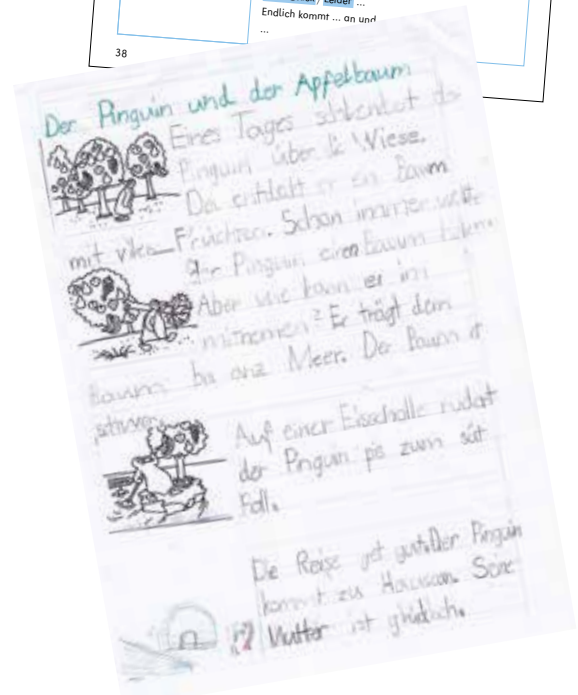 Leider ...
Endlich kommt ... an und
...
38
Der Pinguin und der Apfelbaum
Eines Tages schlentet der
Pinguin über die Wiese.
Da entdekt er ein Baum
mit Früchten. Schon immer wollte
der Pinguin einen Baum haben.
Aber wie kann er in
mitnemen? Er trägt dem
Baum ans Meer. Der Baum ist
schwer.
Auf einer Eisscholle rudat
der Pinguin pis zum süt
Poll.
Die Reise get gut. Der Pinguin
kommt zu Hause an. Seine
Mutter ist glücklich.